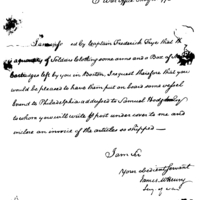 I am ed by Captain Frederick Frye that th
a quantity of Soldiers Clothing some arms and a Box of
Cartridges left by you in Boston, I request therefore that you
would be pleased to have them put on board some vessel
bound to Philadelphia addressed to Samuel Hodgdon
to whom you will write & put under cover to me and
enclose an invoice of the articles so shipped —
I am Sir
Your obedient Servant
James McHenry
Secy of War